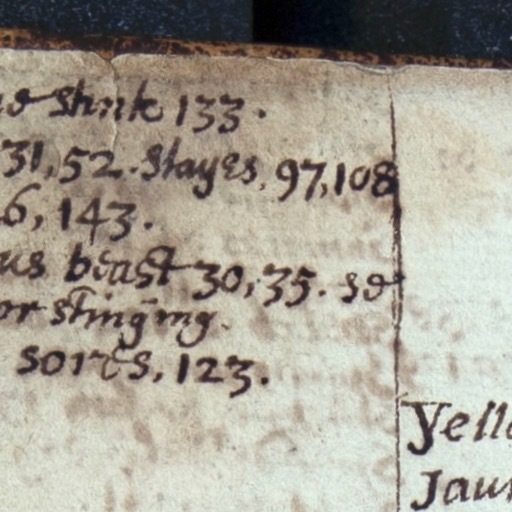 stink 133.
31, 52. stayes, 97, 108
6, 143.
us beast 30, 35. se
or stinging.
sores, 123.
Yello
Jaun